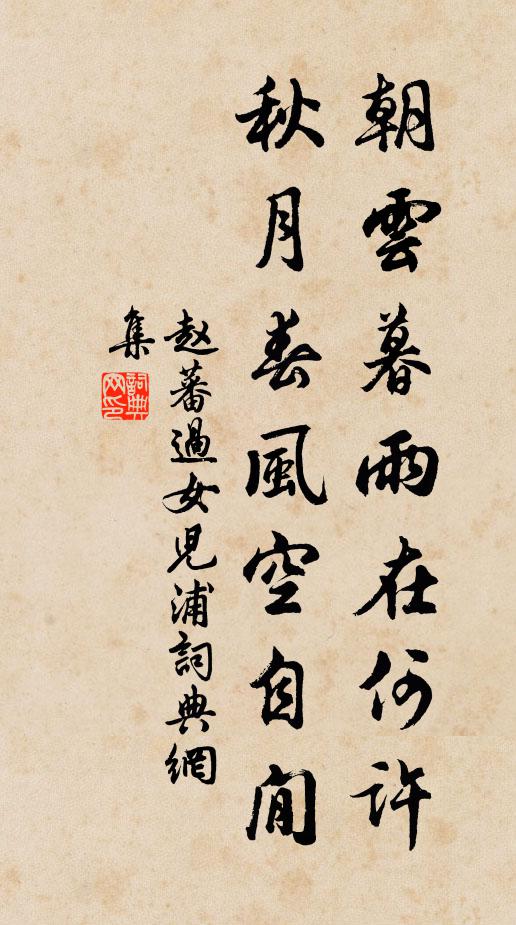 朝雲暮雨在何許
秋月春風空自閒
赵蕃過女児浦詞典網
集
詞典
网印